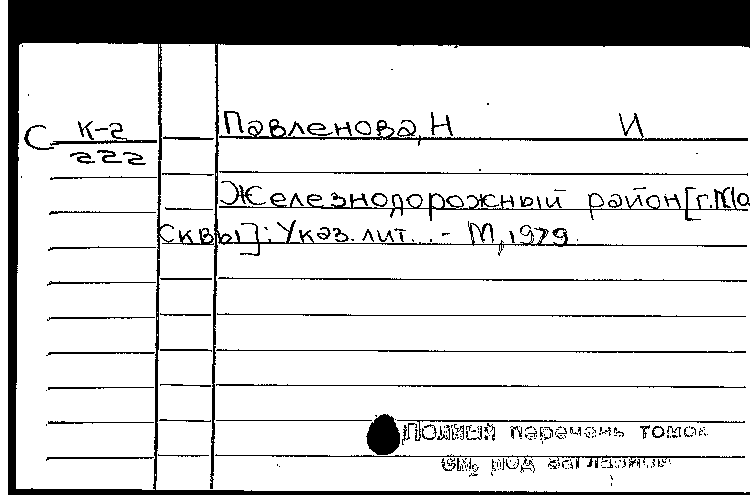 С К-2
222
Павленова, Н И
Железнодорожный район [г. Мо
сквы]: Указ. лит... - М, 1979.
Полный перечень томов
см. под заглавием